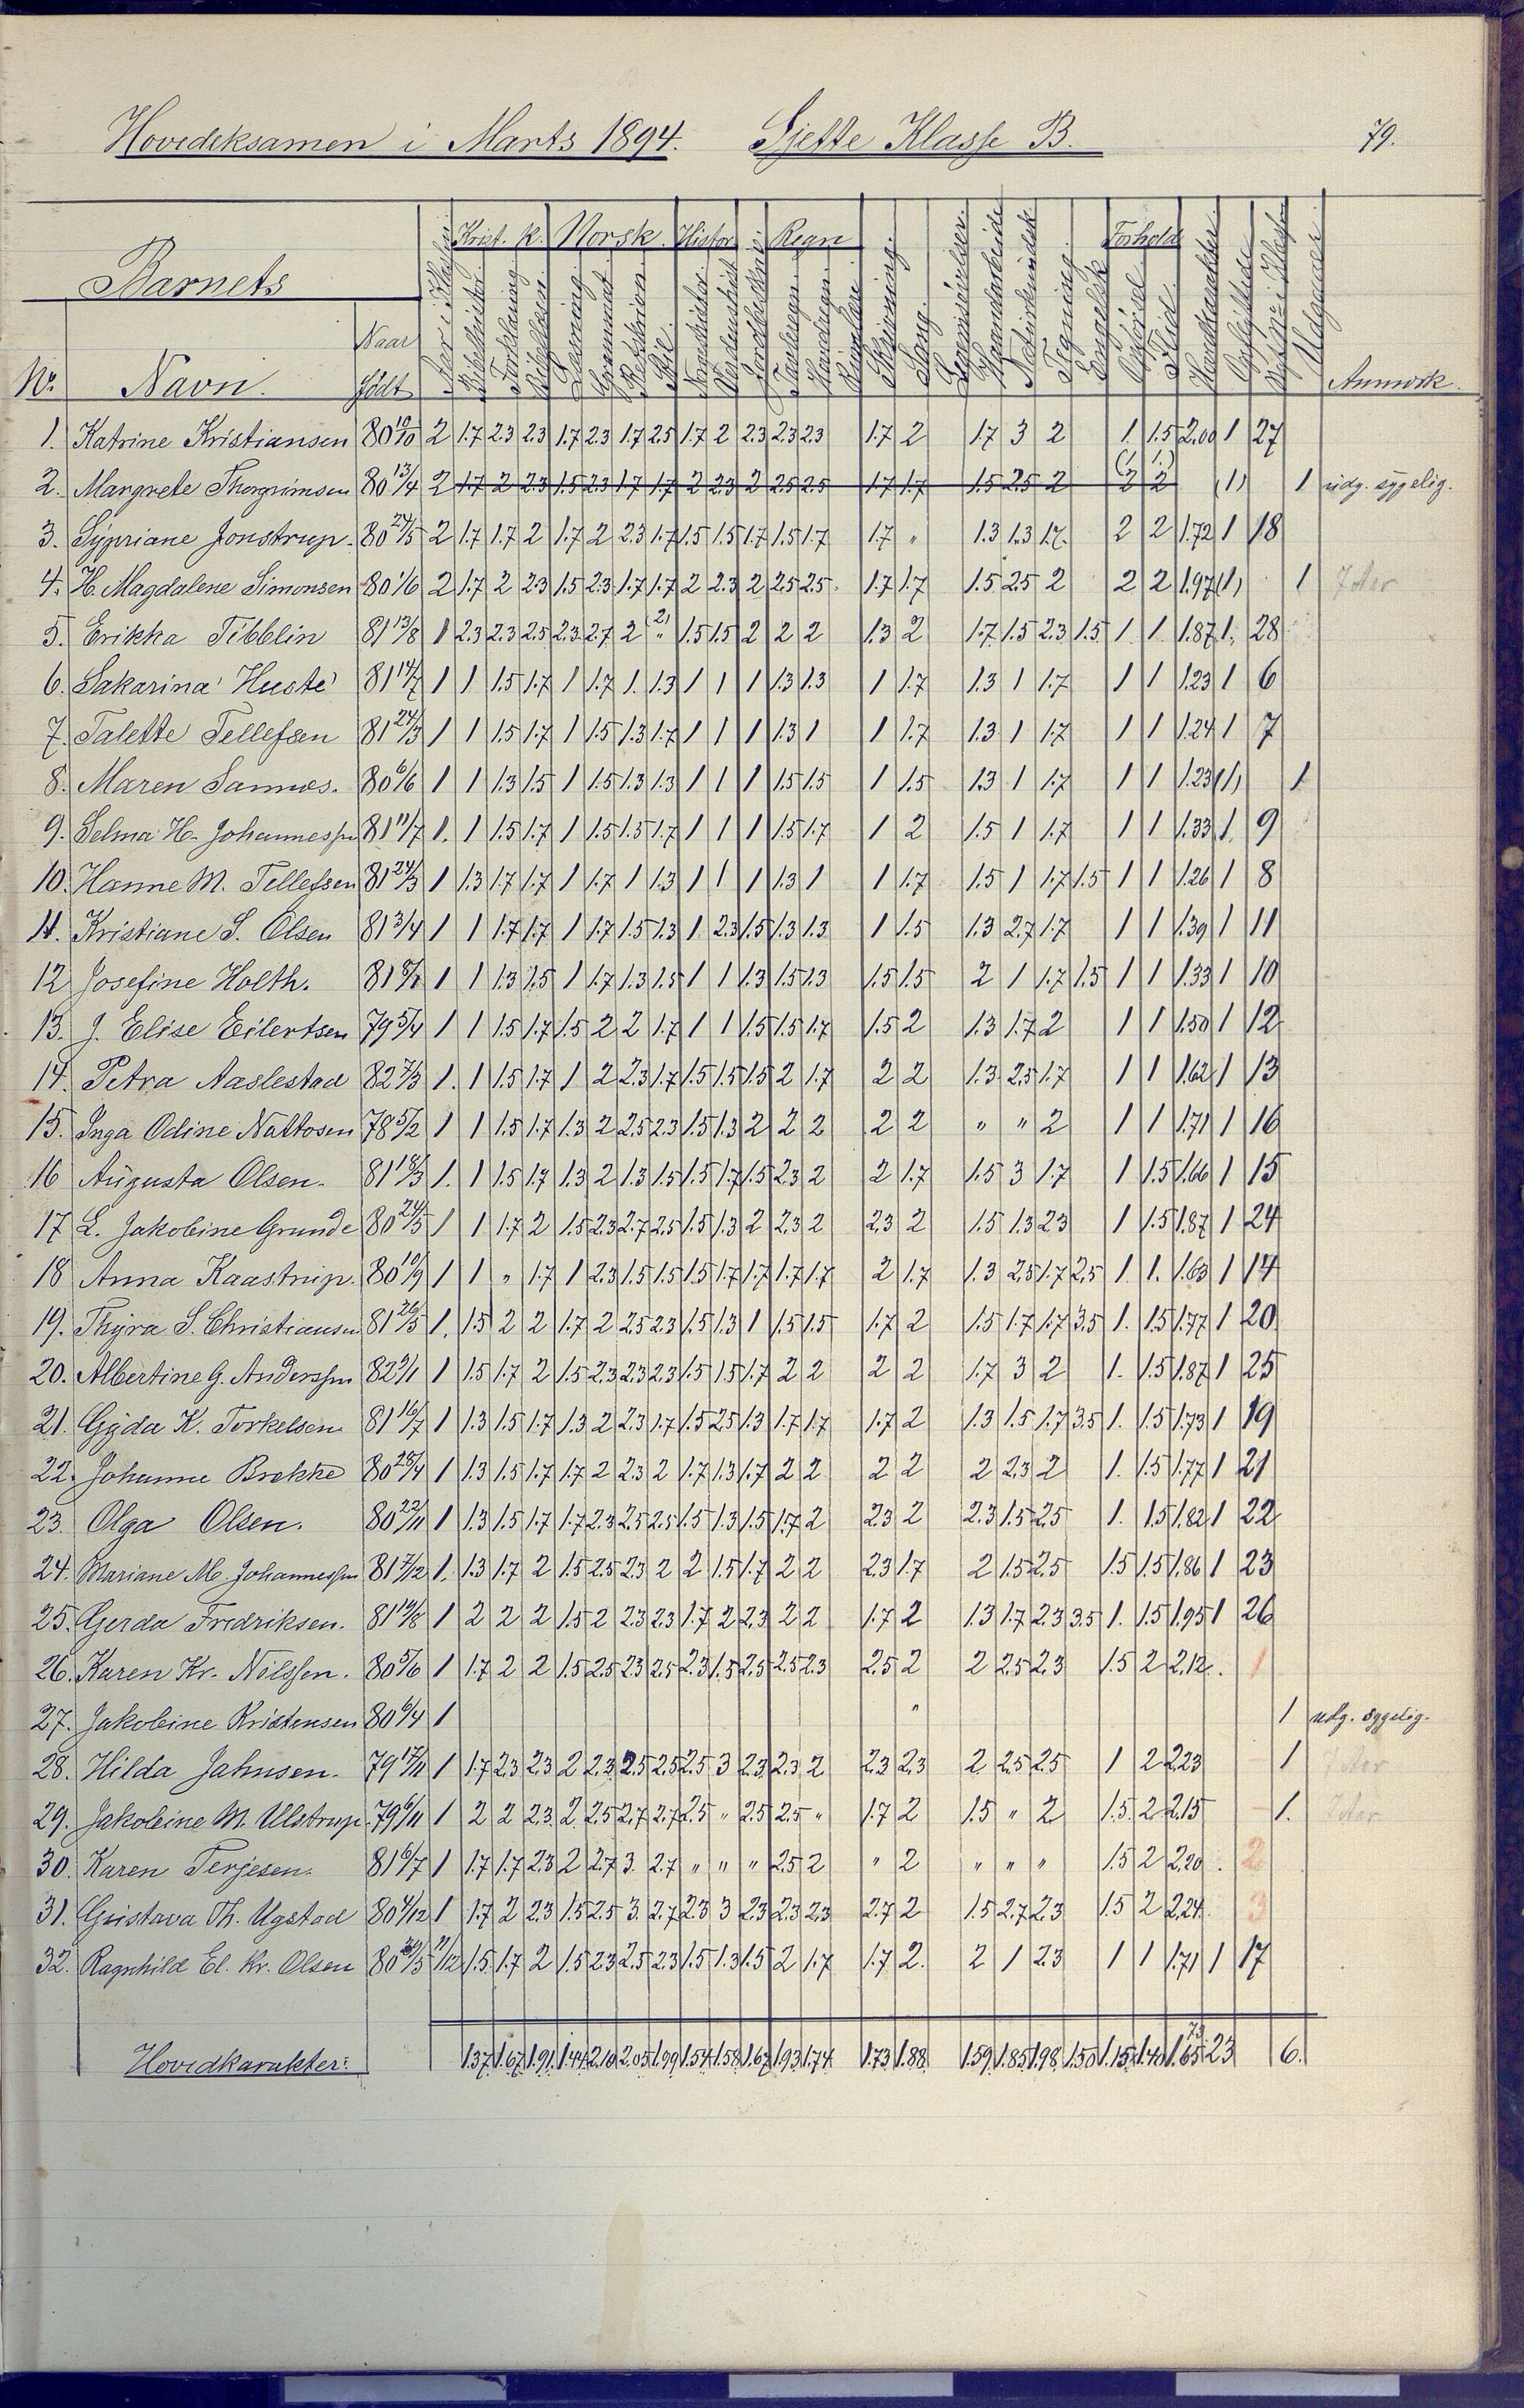 Hovedeksamen i Marts 1894. Sjette Klasse B. 79.
Krist. k. Norsk. Histor. Regn Forhold
Barnets
Aar i Klassen Bibelhistor. Forklaring Bibellæsn. Læsning Grammat. Stil Jordbeskriv. Tavleregn. Skrivning. Sang. Haandarbeide Tegning. Engelsk Orden Flid. Hovedkarakter Udgaaet
Naar
No. Navn. født Anmerk.
1. Katrine Kristiansen 80 19/10 2 1.7 2.3 2.3 1.7 2.3 1.7 2.5 1.7 2 2.3 2.3 2.3 1.7 2 1.7 3 2 1. 1.5 2.00 1 27
2. Margrete Thorgrimsen 80 13/4 2 1.7 2 2.3 1.5 2.3 1.7 1.7 2 2.3 2 2.5 2.5 1.7 1.7 1.5 2.5 2 2 2 (1) 1 udg. sygelig.
3. Sypriane Jonstrup. 80 24/5 2 1.7 1.7 2 1.7 2 2.3 1.7 1.5 1.5 1.7 1.5 1.7 1.7 " 1.3 1.3 1.7 2 2 1.72 1 18
4. H. Magdalene Simonsen 80 1/6 2 1.7 2 2.3 1.5 2.3 1.7 1.7 2 2.3 2 2.5 2.5 1.7 1.7 1.5 2.5 2 2 2 1.97 (1) 1 7 Aar
5. Erikka Tibblin 81 13/8 1 2.3 2.3 2.5 2.3 2.7 2 " 1.5 1.5 2 2 2 1.3 2 1.7 1.5 2.3 1.5 1 1 1.87 1. 28
6. Sakarina Huste 81 14/7 1 1 1.5 1.7 1 1.7 1. 1.3 1 1 1 1.3 1.3 1 1.7 1.3 1 1.7 1 1 1.23 1 6
7. Talette Tellefsen 81 24/3 1 1 1.5 1.7 1 1.5 1.3 1.7 1 1 1 1.3 1 1 1.7 1.3 1 1.7 1 1 1.24 1 7
8. Maren Sannes. 80 6/6 1 1 1.3 1.5 1 1.5 1.3 1.3 1 1 1 1.5 1.5 1 1.5 1.3 1 1.7 1 1 1.23 (1) 1
9. Selma H. Johannessen 81 11/7 1. 1 1.5 1.7 1 1.5 1.5 1.7 1 1 1 1.5 1.7 1 2 1.5 1 1.7 1 1 1.33 1. 9
10. Hanne M. Tellefsen 81 24/3 1 1.3 1.7 1.7 1 1.7 1 1.3 1 1 1 1.3 1 1 1.7 1.5 1 1.7 1.5 1 1 1.26 1 8
11. Kristiane S. Olsen 81 3/4 1 1 1.7 1.7 1 1.7 1.5 1.3 1 2.3 1.5 1.3 1.3 1 1.5 1.3 2.7 1.7 1 1 1.39 1 11
12 Josefine Holth. 81 1 1 1.3 1.5 1 1.7 1.3 1.5 1 1 1.3 1.5 1.3 1.5 1.5 2 1 1.7 1.5 1 1 1.33 1 10
13. J. Elise Eilertsen 79 5/4 1 1 1.5 1.7 1.5 2 2 1.7 1 1 1.5 1.5 1.7 1.5 2 1.3 1.7 2 1 1 1.50 1 12
14. Petra Aaslestad 82 7/3 1. 1 1.5 1.7 1 2 2.3 1.7 1.5 1.5 1.5 2 1.7 2 2 1.3 2.5 1.7 1 1 1.62 1 13
15. Inga Odine Nattosen 78 5/2 1 1 1.5 1.7 1.3 2 2.5 2.3 1.5 1.3 2 2 2 2 2 " " 2 1 1 1.71 1 16
16 Augusta Olsen. 81 18/3 1. 1 1.5 1.7 1.3 2 1.3 1.5 1.5 1.7 1.5 2.3 2 2 1.7 1.5 3 1.7 1 1.5 1.66 1 15
17 L. Jakobine Grunde 80 24/5 1 1 1.7 2 1.5 2.3 2.7 2.5 1.5 1.3 2 2.3 2 2.3 2 1.5 1.3 2.3 1 1.5 1.87 1 24
18 Anna Kaastrup. 80 10/9 1 1 " 1.7 1 2.3 1.5 1.5 1.5 1.7 1.7 1.7 1.7 2 1.7 1.3 2.5 1.7 2.5 1. 1. 1.63 1 14
19. Thyra S. Christiansen 81 26/5 1. 1.5 2 2 1.7 2 2.5 2.3 1.5 1.3 1 1.5 1.5 1.7 2 1.5 1.7 1.7 3.5 1. 1.5 1.77 1 20
20. Albertine G. Anderssen 82 9/1 1 1.5 1.7 2 1.5 2.3 2.3 2.3 1.5 1.5 1.7 2 2 2 2 1.7 3 2 1. 1.5 1.87 1 25
21. Gyda K. Torkelsen 81 16/7 1 1.3 1.5 1.7 1.3 2 2.3 1.7 1.5 2.5 1.3 1.7 1.7 1.7 2 1.3 1.5 1.7 3.5 1. 1.5 1.73 1 19
22. Johanne Brekke 80 28/4 1 1.3 1.5 1.7 1.7 2 2.3 2 1.7 1.3 1.7 2 2 2 2 2 2.3 2 1. 1.5 1.77 1 21
23. Olga Olsen. 80 22/11 1 1.3 1.5 1.7 1.7 2.3 2.5 2.5 1.5 1.3 1.5 1.7 2 2.3 2 2.3 1.5 2.5 1. 1.5 1.82 1 22
24. Mariane M. Johannessen 81 7/12 1. 1.3 1.7 2 1.5 2.5 2.3 2 2 1.5 1.7 2 2 2.3 1.7 2 1.5 2.5 1.5 1.5 1.86 1 23
25. Gerda Fredriksen. 81 19/8 1 2 2 2 1.5 2 2.3 2.3 1.7 2 2.3 2 2 1.7 2 1.3 1.7 2.3 3.5 1. 1.5 1.95 1 26
26. Karen Kr. Nilssen. 80 5/6 1 1.7 2 2 1.5 2.5 2.3 2.5 2.3 1.5 2.5 2.5 2.3 2.5 2 2 2.5 2.3 1.5 2 2.12. 1
27. Jakobine Kristensen 80 6/4 1 " 1 udg. sygelig.
28. Hilda Jahnsen. 79 17/11 1 1.7 2.3 2.3 2 2.3 2.5 2.5 2.5 3 2.3 2.3 2 2.3 2.3 2 2.5 2.5 1 2 2.23 1 7 Aar
29. Jakobine M. Ulstrup. 79 6/11 1 2 2 2.3 2 2.5 2.7 2.7 2.5 " 2.5 2.5 " 1.7 2 1.5 " 2 1.5 2 2.15 1. 7 Aar
30. Karen Terjesen. 81 6/7 1 1.7 1.7 2.3 2 2.7 3. 2.7 " " " 2.5 2 " 2 " " " 1.5 2 2.20. 2
31. Gustava Th. Ugstad 80 4/12 1 1.7 2 2.3 1.5 2.5 3. 2.7 2.3 3 2.3 2.3 2.3 2.7 2 1.5 2.7 2.3 1.5 2 2.24. 3
32. Ragnhild El. Kr. Olsen 80 11/12 1.5 1.7 2 1.5 2.3 2.5 2.3 1.5 1.3 1.5 2 1.7 1.7 2. 2 1 2.3 1 1 1.71 1 17
Hovedkarakter: 1.37 1.67 1.91 1.44 2.10 2.05 1.99 1.54 1.58 1.67 1.93 1.74 1.73 1.88 1.59 1.85 1.98 1.50 1.15 1.40 1.65 23 6.